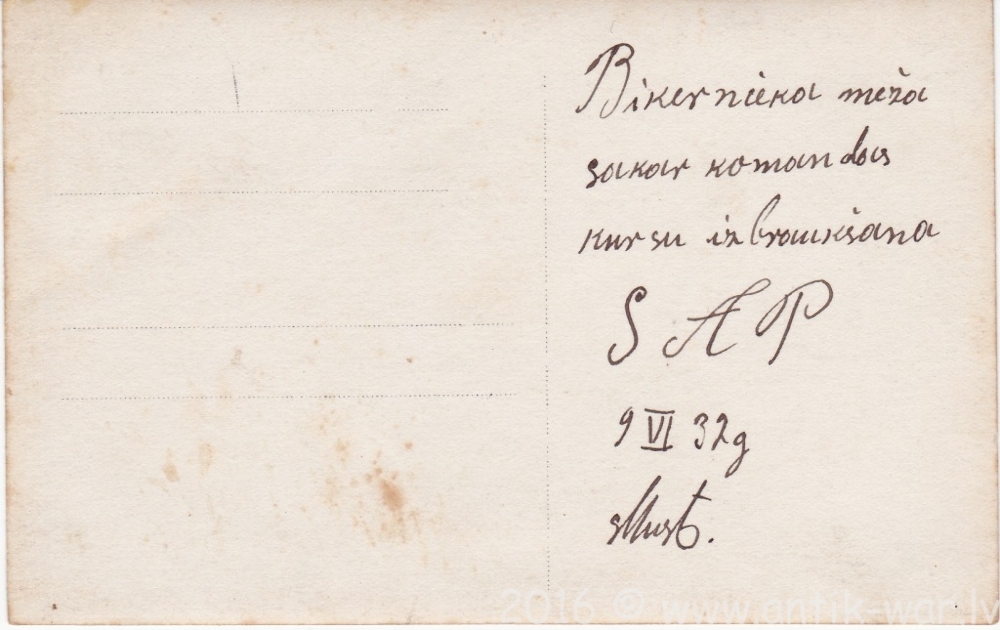 Bikernieka meža
sakar komandas
kursu izbraukšana
S A P
9 VI 32g
2016 © www.antik-war.lv